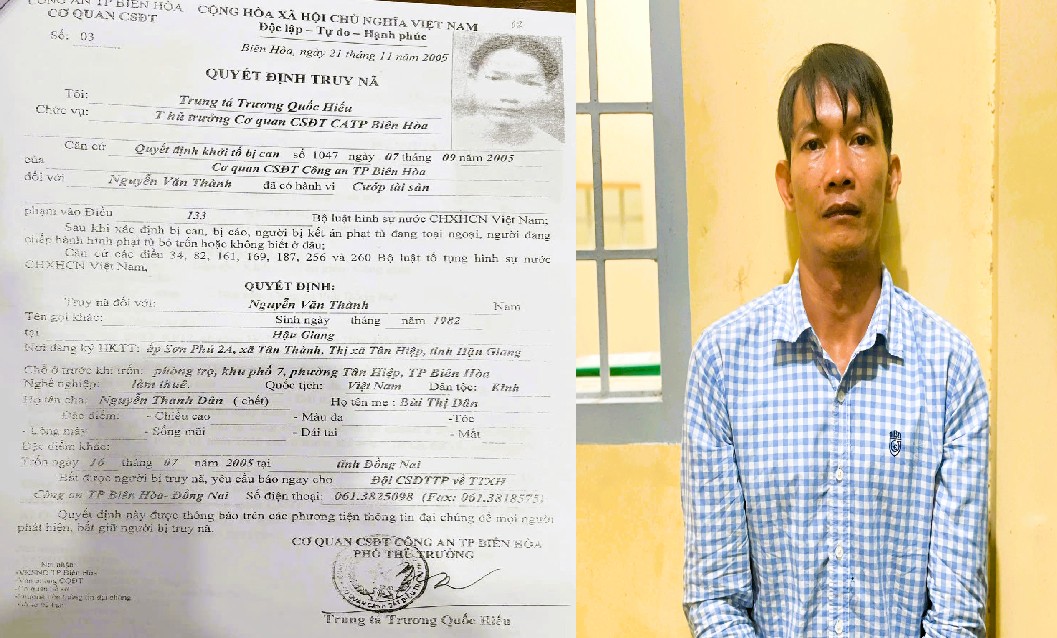 CÔNG AN TP BIÊN HÒA
CỘNG HÒA XÃ HỘI CHỦ NGHĨA VIỆT NAM
CƠ QUAN CSĐT
Độc lập – Tự do – Hạnh phúc
Số: 03
Biên Hòa, ngày 21 tháng 11 năm 2005
QUYẾT ĐỊNH TRUY NÃ
Tôi: Trung tá Trương Quốc Hiếu
Chức vụ: Thủ trưởng Cơ quan CSĐT CATP Biên Hòa
Căn cứ Quyết định khởi tố bị can số 1047 ngày 07 tháng 09 năm 2005
của Cơ quan CSĐT Công an TP Biên Hòa
đối với Nguyễn Văn Thành đã có hành vi Cướp tài sản
phạm vào Điều 133 Bộ luật hình sự nước CHXHCN Việt Nam;
Sau khi xác định bị can, bị cáo, người bị kết án phạt tù đang tại ngoại, người đang
chấp hành hình phạt tù bỏ trốn hoặc không biết ở đâu;
Căn cứ các điều 34, 82, 161, 169, 187, 256 và 260 Bộ luật tố tụng hình sự nước
CHXHCN Việt Nam,
QUYẾT ĐỊNH:
Truy nã đối với: Nguyễn Văn Thành Nam
Tên gọi khác: Sinh ngày tháng năm 1982
tại Hậu Giang
Nơi đăng ký HKTT: ấp Sơn Phú 2A, xã Tân Thành, Thị xã Tân Hiệp, tỉnh Hậu Giang
Chỗ ở trước khi trốn: phòng trọ, khu phố 7, phường Tân Hiệp, TP Biên Hòa
Nghề nghiệp: làm thuê. Quốc tịch: Việt Nam Dân tộc: Kinh
Họ tên cha: Nguyễn Thanh Dân ( chết) Họ tên mẹ : Bùi Thị Dân
Đặc điểm: - Chiều cao - Màu da -Tóc
- Lông mày - Sống mũi - Dái tai - Mắt
Đặc điểm khác:
Trốn ngày 16 tháng 07 năm 2005 tại tỉnh Đồng Nai
Bắt được người bị truy nã, yêu cầu báo ngay cho Đội CSĐTTP về TTXH
Công an TP Biên Hòa- Đồng Nai Số điện thoại: 061.3825098 (Fax: 061.3818575)
Quyết định này được thông báo trên các phương tiện thông tin đại chúng để mọi người
phát hiện, bắt giữ người bị truy nã.
CƠ QUAN CSĐT CÔNG AN TP BIÊN HÒA
PHÓ THỦ TRƯỞNG
Nơi nhận:
-VKSND TP Biên Hòa
Trung tá Trương Quốc Hiếu